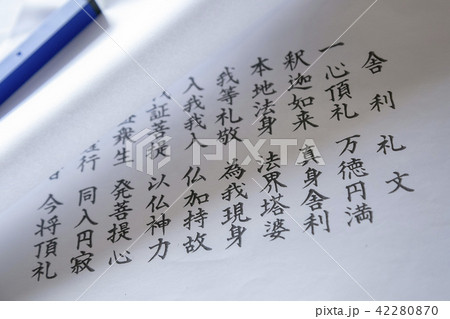 舎利礼文
一心頂礼 万徳円満
釈迦如来 真身舎利
本地法身 法界塔婆
我等礼敬 為我現身
入我我入 仏加持故
証菩提 以仏神力
衆生 発菩提心
行 同入円寂
今将頂礼
PIXTA
pixta.jp - 42280870